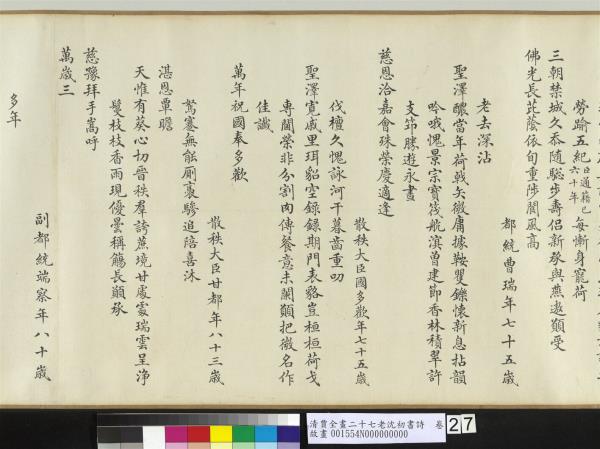 勞踰五紀臣通籍已六十年每慚身寵荷
三朝禁城久忝隨驄步壽侶新叅與燕遨顒受
佛光長芘蔭依旬重陟閬風高
都統曹瑞年七十五歲
老去深沾
聖澤醲當年荷戟矢微庸據鞍矍鑠懷新息拈韻
吟哦愧景宗寶筏航濱曾建節香林積翠許
支笻勝遊永晝
慈恩洽嘉會殊榮慶適逢
散秩大臣國多歡年七十五歲
伐檀久愧詠河干暮齒重叨
聖澤寬戚里珥貂空錄錄期門表貉豈桓桓荷戈
專閫榮非分割肉傳餐意未闌顒把微名作
佳讖
萬年祝國奉多歡
散秩大臣甘都年八十三歲
駑蹇無能廁裹驂追陪喜沐
湛恩覃瞻
天惟有葵心切晉秩羣誇蔗境甘處處瑞雲呈淨
鬘枝枝香雨現優曇稱觴長顒承
慈豫拜手嵩呼
萬歲三
副都統端察年八十歲
多年
清賈全畫二十七老沈初書詩 卷
故畫 001554N000000000
27